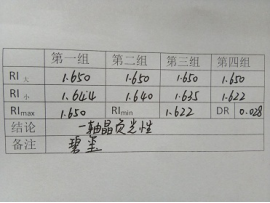 第一组 第二组 第三组 第四组
RI大 1.650 1.650 1.650 1.650
RI小 1.644 1.640 1.635 1.622
RImax 1.650 RImin 1.622 DR 0.028
结论 一轴晶负光性
备注 碧玺